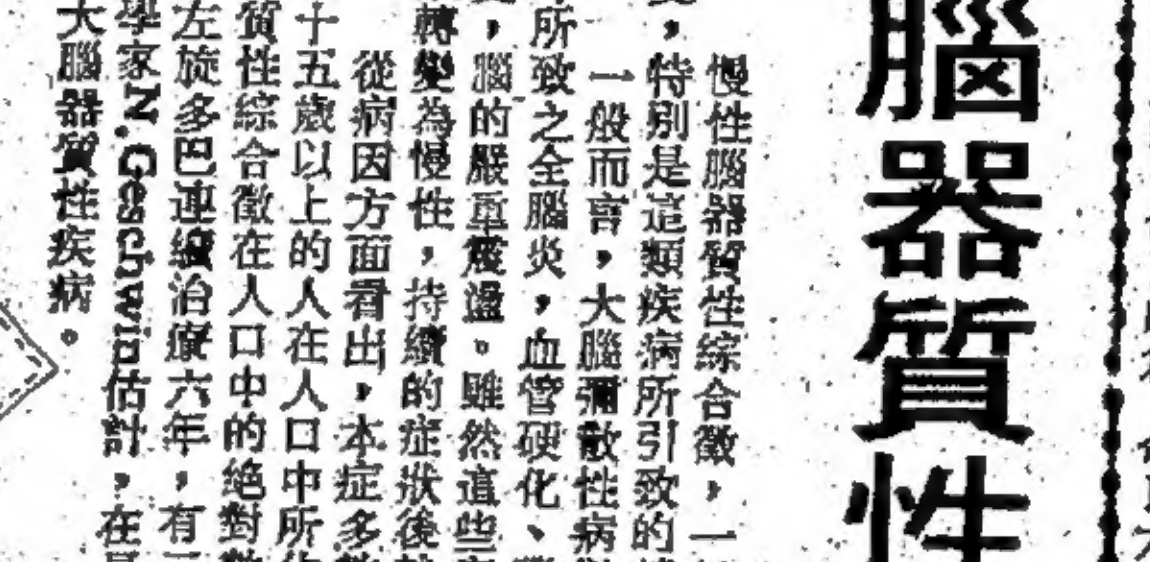 腦器質性
慢性腦器質性綜合徵，一
，特別是這類疾病所引致的
一般而言，大腦彌散性病
所致之全腦炎，血管硬化、
，腦的嚴重震盪。雖然這些
轉變為慢性，持續的症狀後
從病因方面看出，本症多
十五歲以上的人在人口中所
質性綜合徵在人口中的絕對
左旋多巴連續治療六年，有
學家N.Geschwind估計，在
大腦器質性疾病。